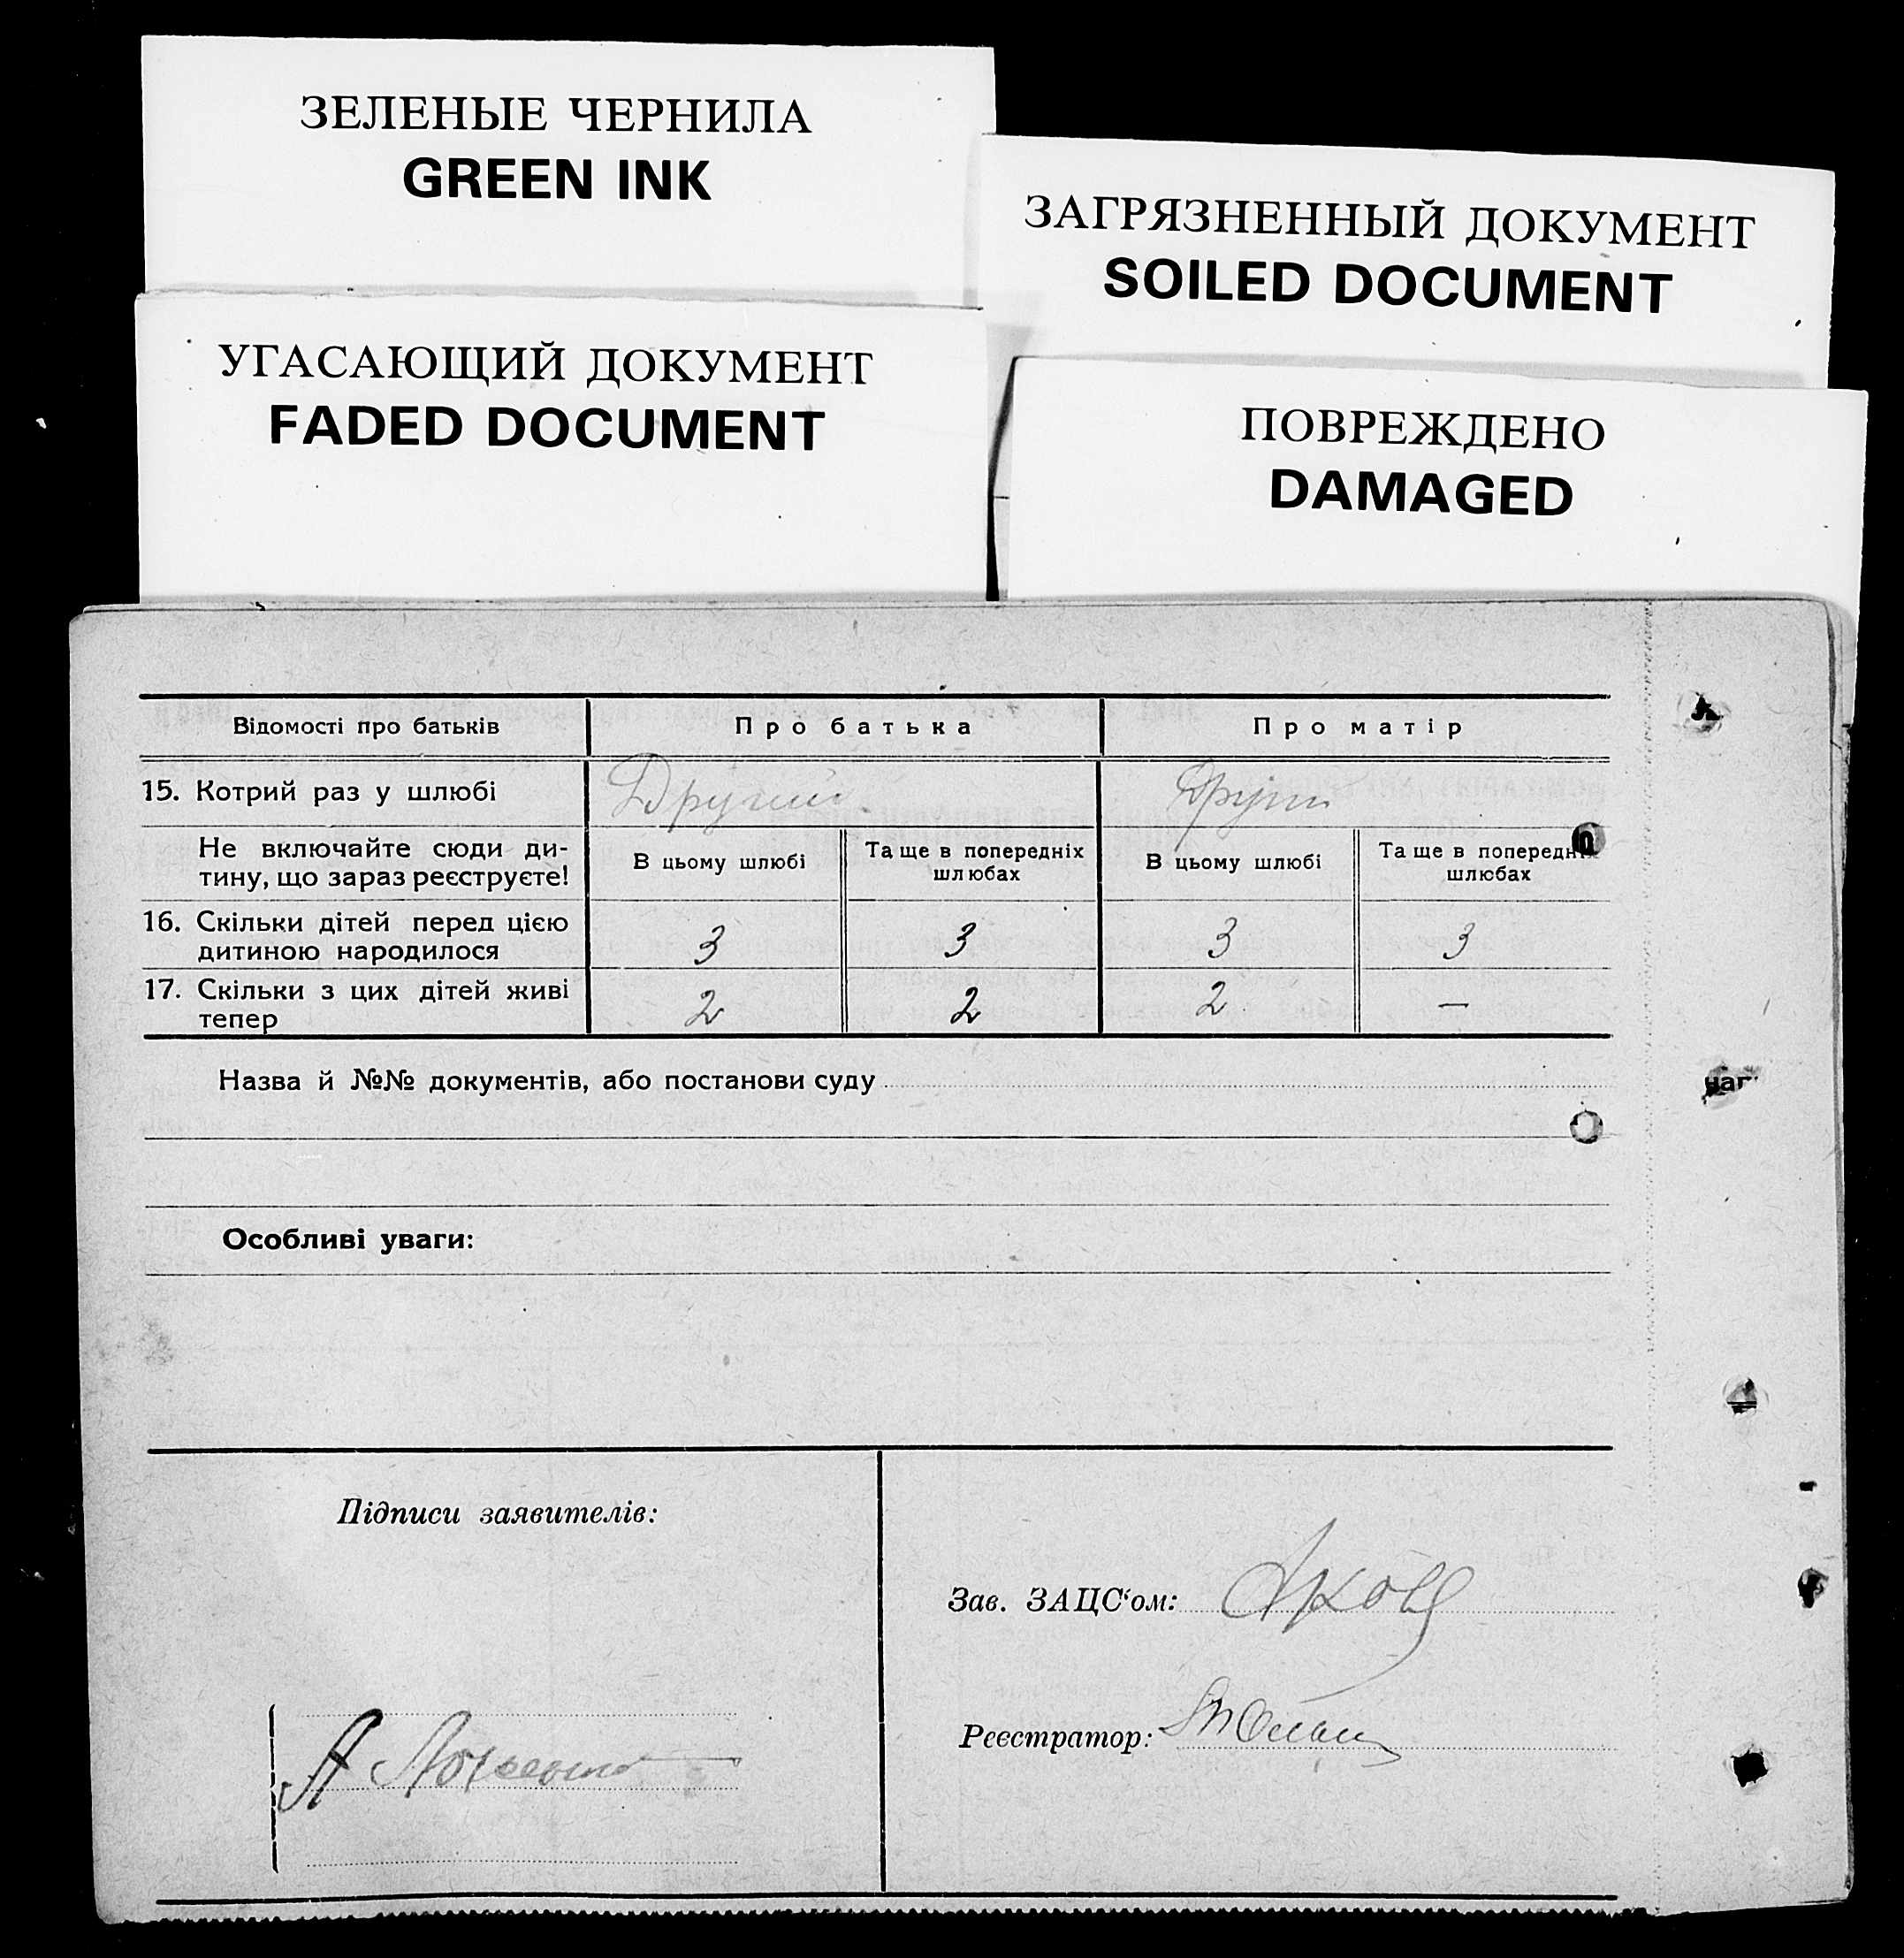 ЗЕЛЕНЫЕ ЧЕРНИЛА
GREEN INK
ЗАГРЯЗНЕННЫЙ ДОКУМЕНТ
SOILED DOCUMENT
УГАСАЮЩИЙ ДОКУМЕНТ
FADED DOCUMENT
ПОВРЕЖДЕНО
DAMAGED
Відомості про батьків Про батька Про матір
15. Котрий раз у шлюбі Другий
Не включайте сюди ди-
тину, що зараз реєструєте!
В цьому шлюбі
Та ще в попередніх
шлюбах
В цьому шлюбі
Та ще в попередніх
шлюбах
16. Скільки дітей перед цією
дитиною народилося 3 3 3 3
17. Скільки з цих дітей живі
тепер 2 2 2 —
Назва й №№ документів, або постанови суду
Особливі уваги:
Підписи заявителів:
Зав. ЗАЦС‘ом:
Реєстратор: